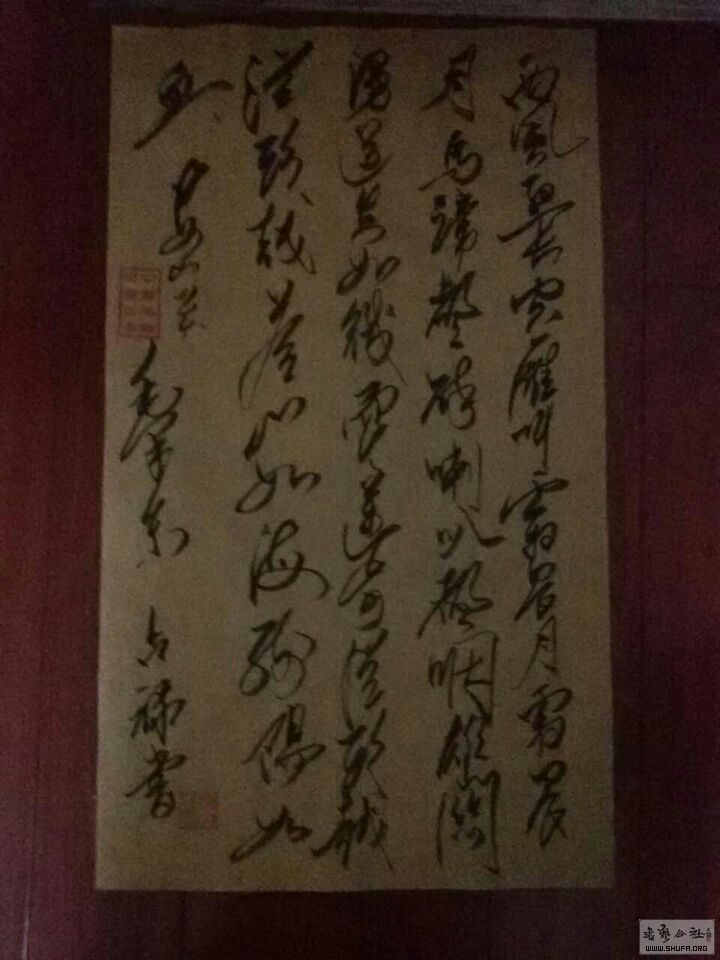 西風烈長空雁叫霜晨月霜晨
月馬蹄聲碎喇叭聲咽雄關
漫道真如鐵而今邁步從頭越
從頭越蒼山如海殘陽如
血 婁山关 毛澤東 書
书艺公社
WWW.SHUFA.ORG